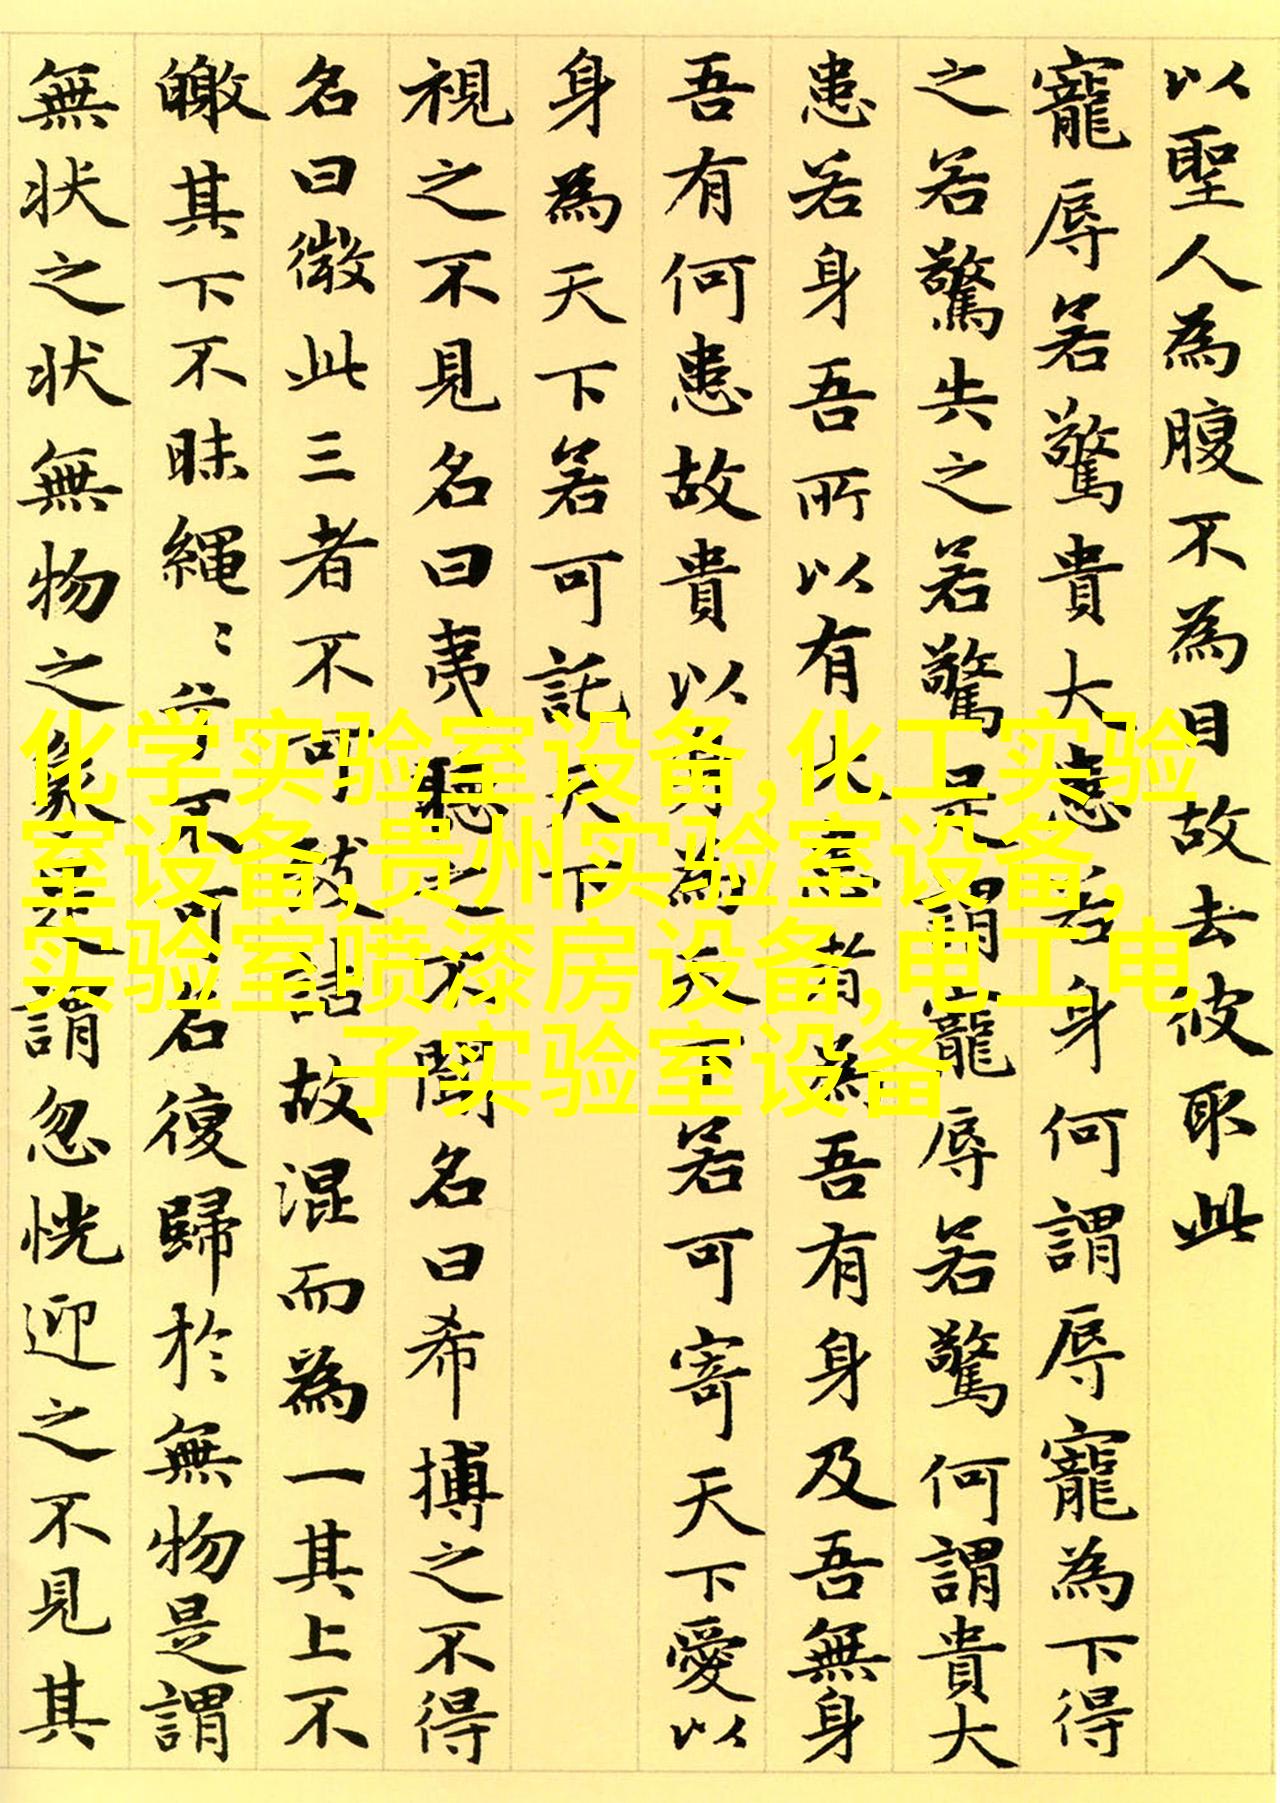 以聖人為腹不為目故去彼取此
寵辱若驚貴大患若身何謂辱寵為下得
之若驚失之若驚是謂寵辱若驚何謂貴大
患若身吾所以有大患者為吾有身及吾無身
吾有何患故貴以身為天下若可寄天下愛以
身為天下若可託天下
視之不見名曰夷聽之不聞名曰希搏之不得
名曰微此三者不可致詰故混而為一其上不
皦其下不昧繩〻兮不可名復歸於無物是謂
無状之状無物之象是謂忽恍迎之不見其
化学实验室设备,化工实验
室设备,贵州实验室设备,
实验室喷漆房设备,电工电
子实验室设备